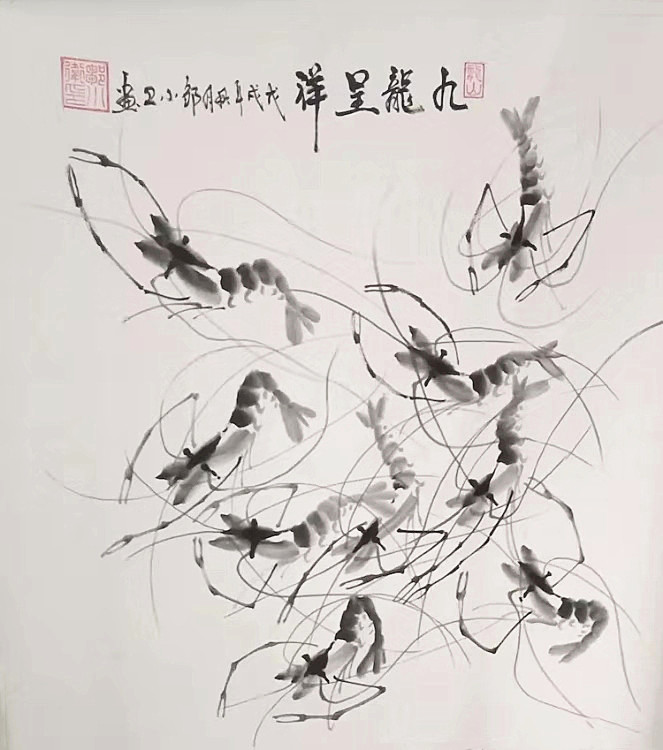 龍山
九龍呈祥
戊戌年秋月郭小卫畫